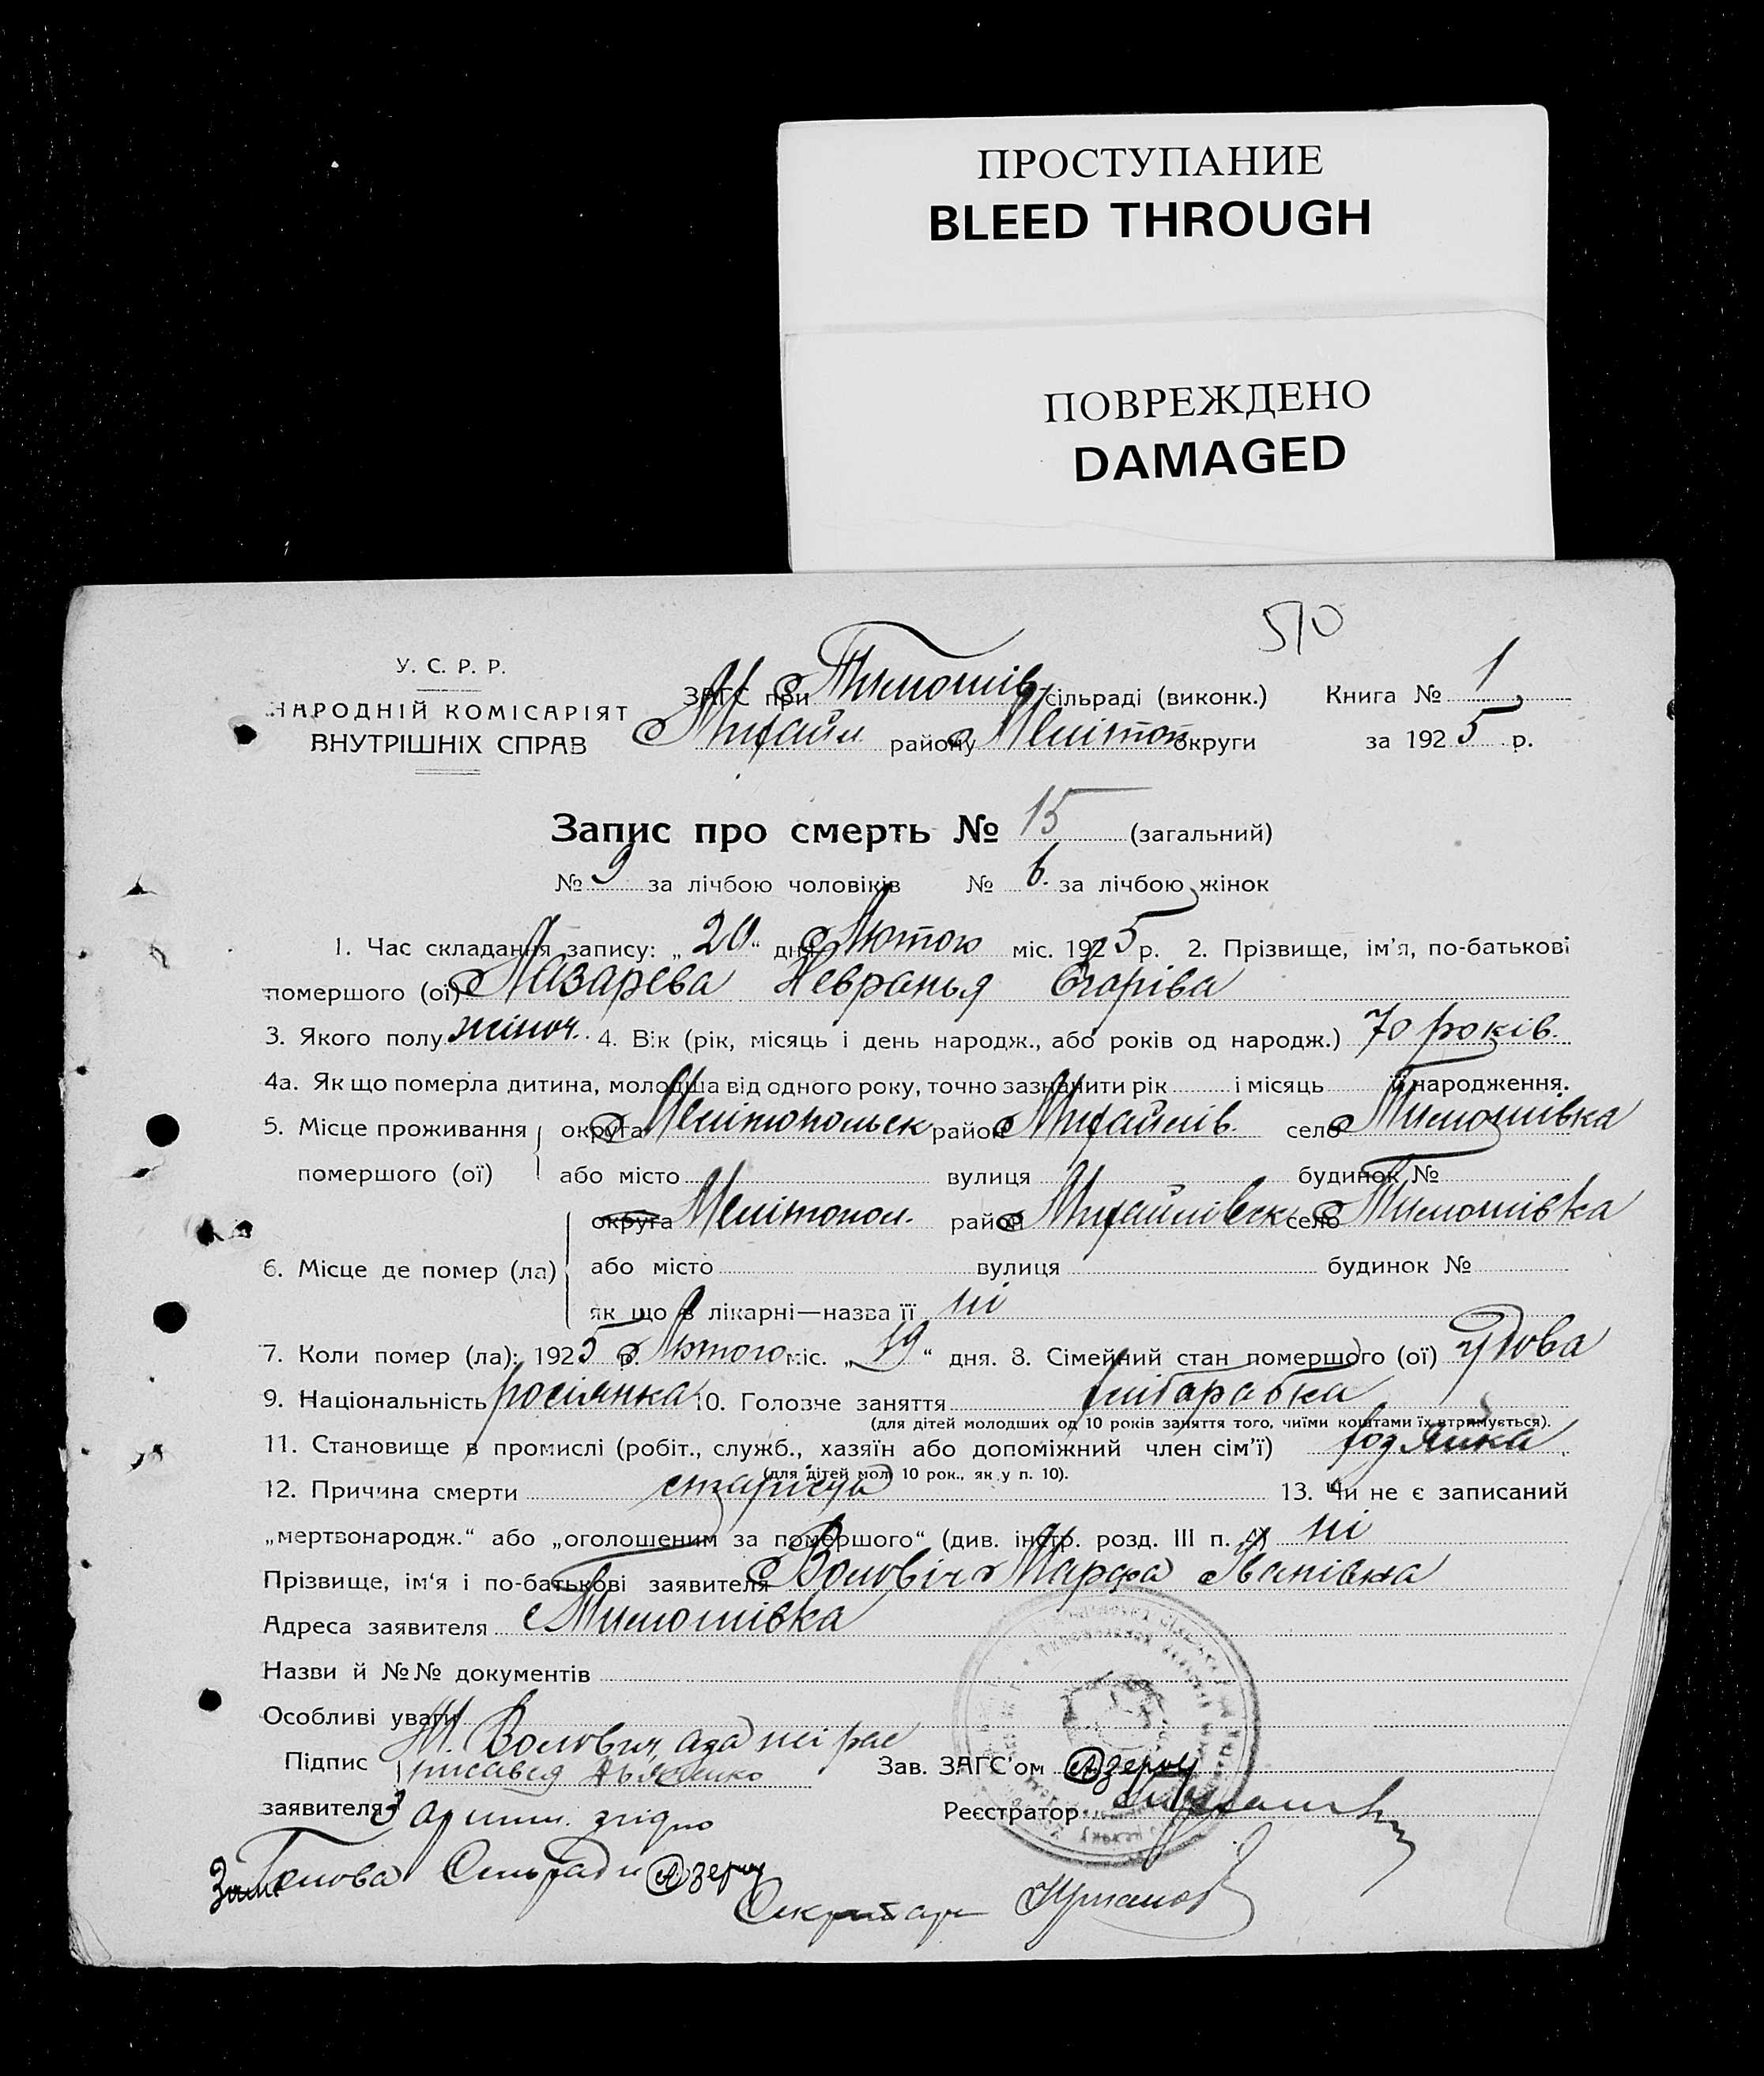 ПРОСТУПАНИЕ
BLEED THROUGH
ПОВРЕЖДЕНО
DAMAGED
510
У. С. Р. Р.
НАРОДНІЙ КОМІСАРІЯТ
ВНУТРІШНІХ СПРАВ
ЗАГС при Тимошів сільраді (виконк.) Книга № 1
Михайл району Мелітоп округи за 1925 р.
Запис про смерть № 15 (загальний)
№ 9 за лічбою чоловіків № 6. за лічбою жінок
1. Час складання запису: „20“ дня Лютого міс. 1925 р. 2. Прізвище, ім'я, по-батькові
помершого (ої) Лазарева Невранья Єгоріва
3. Якого полу жіноч. 4. Вік (рік, місяць і день народж., або років од народж.) 70 років.
4а. Як що померла дитина, молодша від одного року, точно зазначити рік і місяць її народження.
5. Місце проживання округа Мелітопольск район Михайлів. село Тимошівка
помершого (ої) або місто вулиця будинок №
округа Мелітопол. район Михайлівск село Тимошівка
6. Місце де помер (ла) або місто вулиця будинок №
як що в лікарні—назва її ні
7. Коли помер (ла): 1925 р. Лютого міс. „19“ дня. 8. Сімейний стан помершого (ої) удова
9. Національність росіянка 10. Головне заняття хліборобка
(для дітей молодших од 10 років заняття того, чиїми коштами їх втримується).
11. Становище в промислі (робіт., служб., хазяїн або допоміжний член сім'ї) хозяйка
(для дітей мол. 10 рок., як у п. 10).
12. Причина смерти старисць 13. Чи не є записаний
„мертвонародж.“ або „оголошеним за помершого“ (див. інстр. розд. III п. 4) ні
Прізвище, ім'я і по-батькові заявителя Воловіч Марфа Іванівна
Адреса заявителя Тимошівка
Назви й №№ документів
Особливі уваги
Підпис М. Волович, а за неї рас
писався
заявителя З ориги. згідно
Зав. ЗАГС'ом
Реєстратор
Голова Сельради
Секретарь